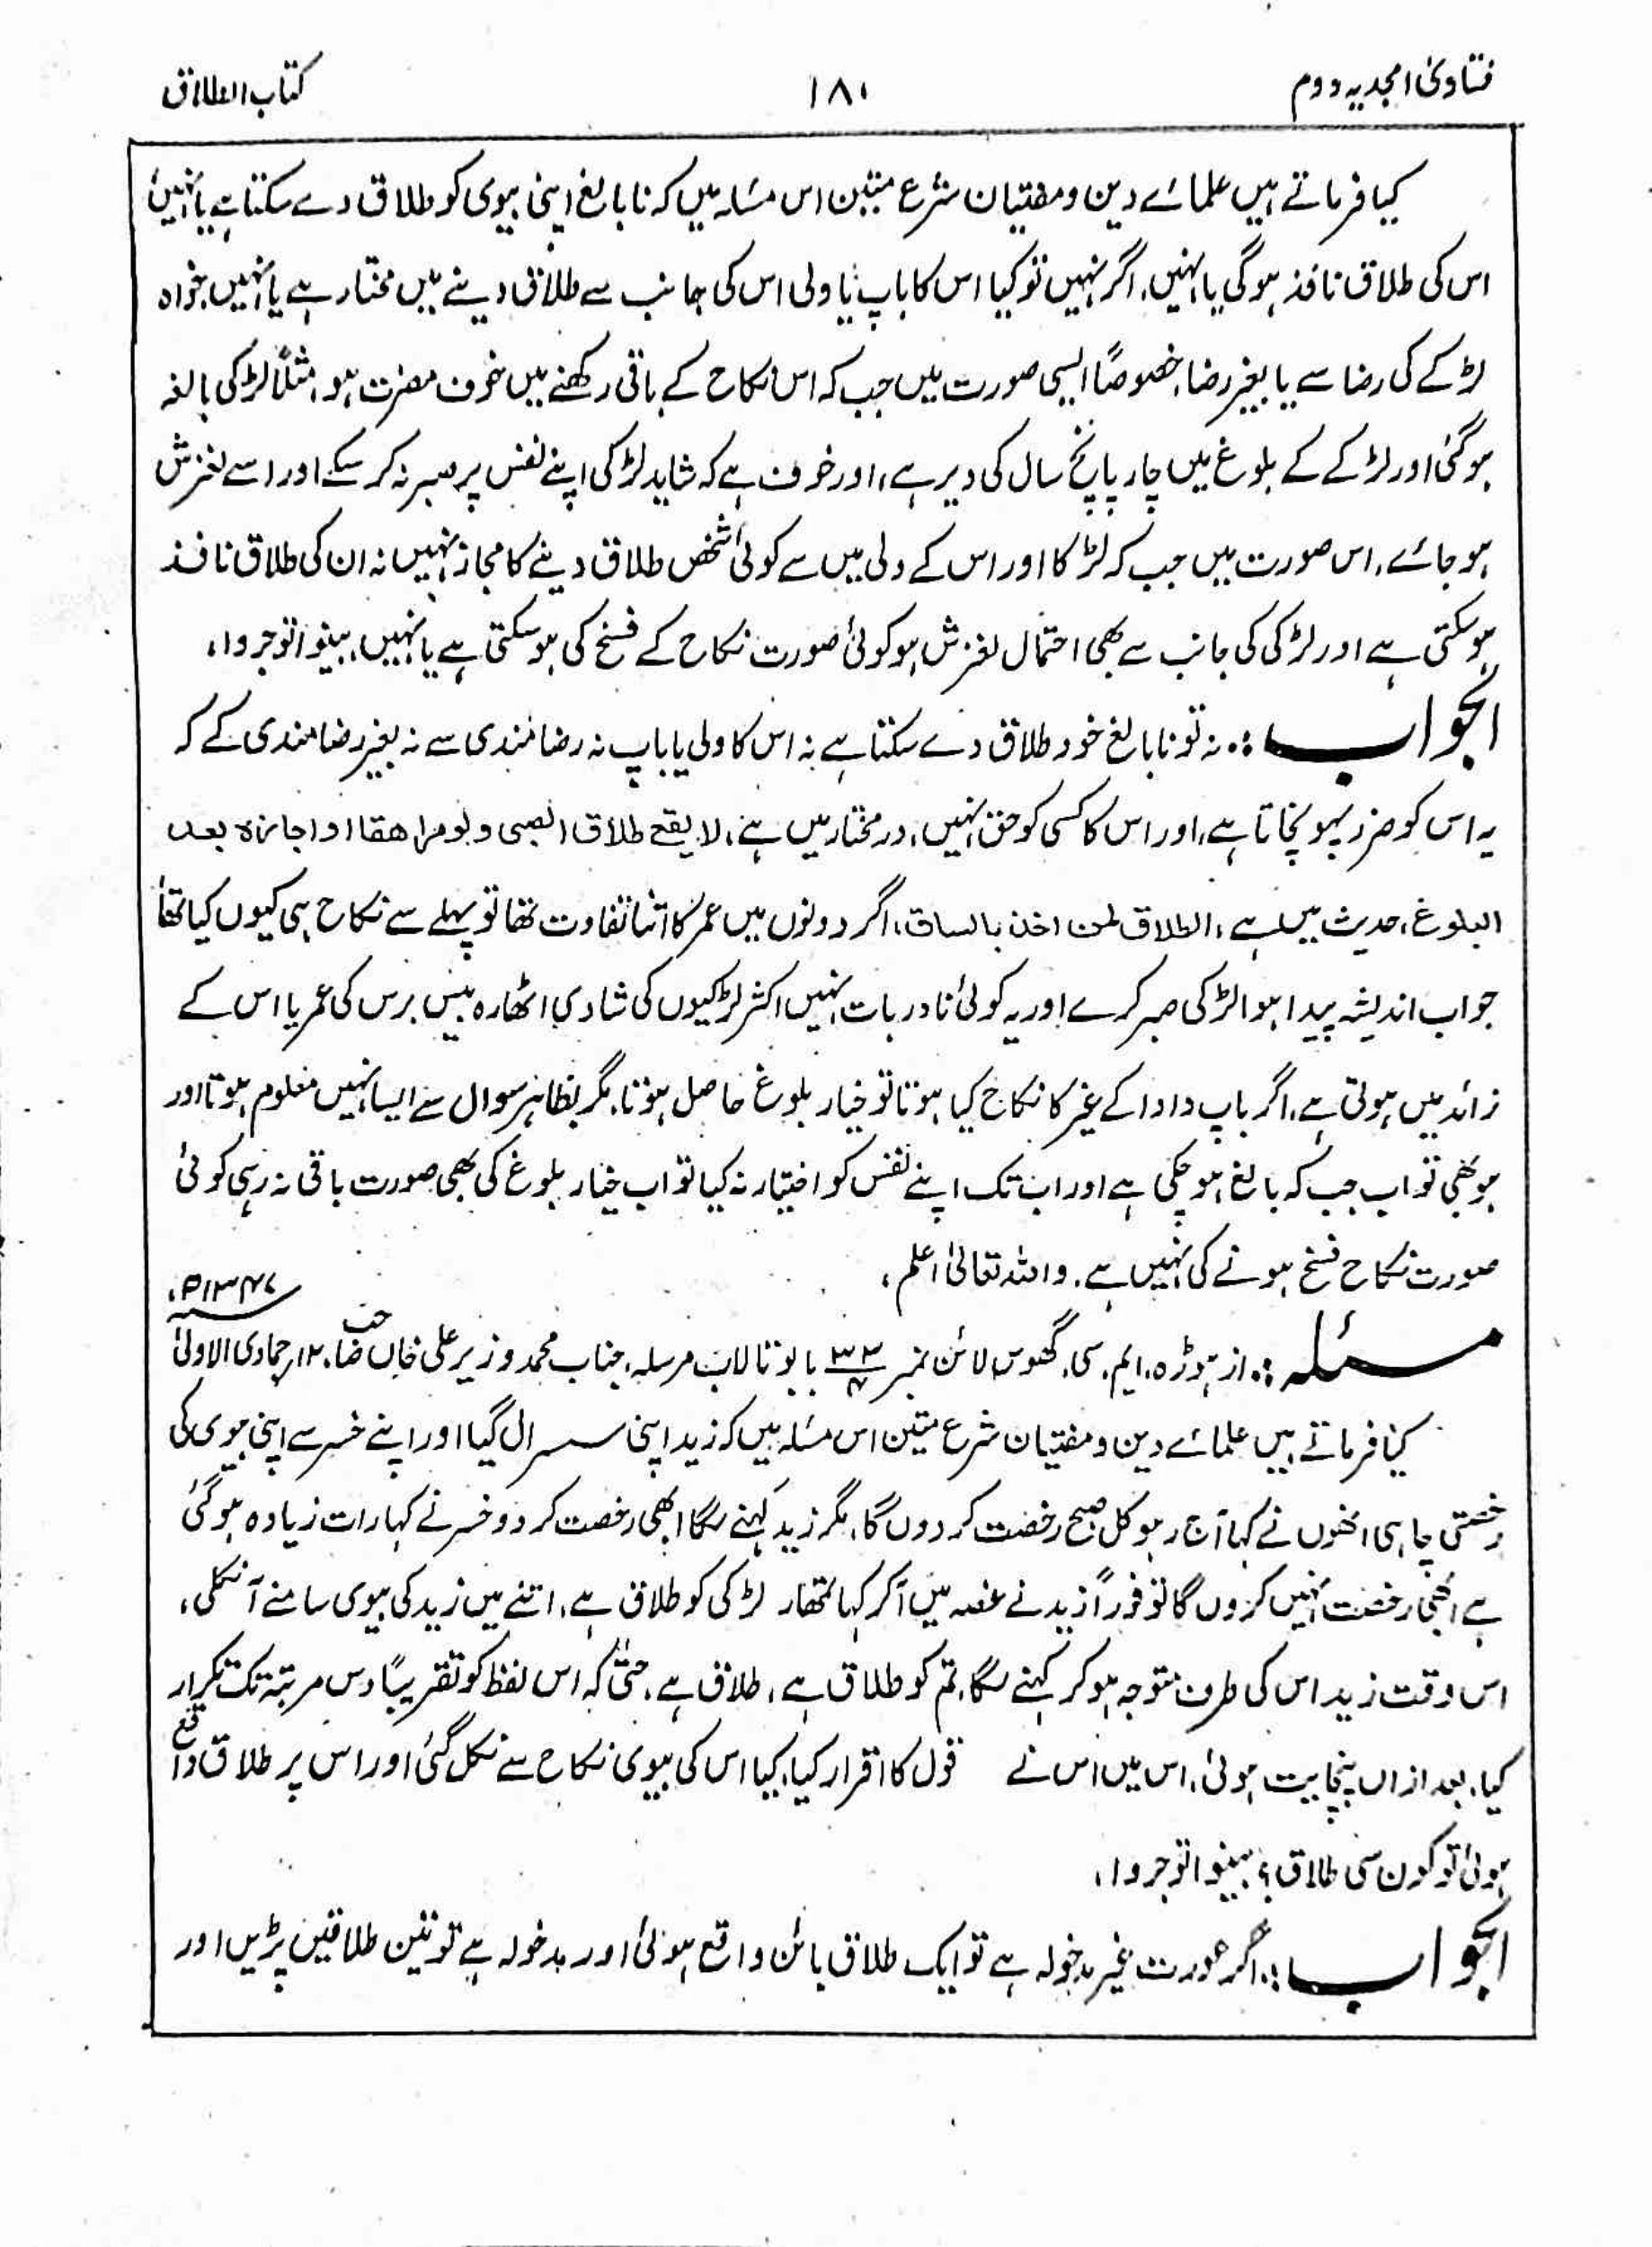 فتاویٰ امجدیہ دوم
۱۸۰
کتاب الطلاق
کیا فرماتے ہیں علمائے دین ومفتیان شرع متین اس مسئلہ میں کہ نا بالغ اپنی بیوی کو طلاق دے سکتا ہے یا نہیں
اس کی طلاق نافذ ہوگی یا نہیں، اگر نہیں تو کیا اس کا باپ یا ولی اس کی جانب سے طلاق دینے میں مختار ہے یا نہیں، خواہ
لڑکے کی رضا سے یا بغیر رضا، خصوصاً ایسی صورت میں جب کہ اس نکاح کے باقی رکھنے میں خوف مضرت ہو، مثلاً لڑکی بالغہ
ہو گئی اور لڑکے کے بلوغ میں چار پانچ سال کی دیر ہے، اور خوف ہے کہ شاید لڑکی اپنے نفس پر صبر نہ کر سکے اور اسے لغزش
ہو جائے، اس صورت میں جب کہ لڑکا اور اس کے ولی میں سے کوئی شخص طلاق دینے کا مجاز نہیں نہ ان کی طلاق نافذ
ہو سکتی ہے اور لڑکی کی جانب سے بھی احتمال لغزش ہو کوئی صورت نکاح کے فسخ کی ہو سکتی ہے یا نہیں، بینوا توجروا،
الجواب :۔ نہ تو نا بالغ خود طلاق دے سکتا ہے نہ اس کا ولی یا باپ نہ رضا مندی سے نہ بغیر رضا مندی کے کہ
یہ اس کو ضرر پہونچاتا ہے، اور اس کا کسی کو حق نہیں، در مختار میں ہے، لا یقع طلاق الصبی ولو مراھقا او اجازہ بعد
البلوغ، حدیث میں ہے، الطلاق لمن اخذ بالساق، اگر دونوں میں عمر کا اتنا تفاوت تھا تو پہلے سے نکاح ہی کیوں کیا تھا
جو اب اندیشہ پیدا ہوا لڑکی صبر کرے اور یہ کوئی نادر بات نہیں اکثر لڑکیوں کی شادی اٹھارہ بیس برس کی عمر یا اس کے
زائد میں ہوتی ہے، اگر باپ دادا کے غیر کا نکاح کیا ہوتا تو خیار بلوغ حاصل ہوتا، مگر بظاہر سوال سے ایسا نہیں معلوم ہوتا اور
ہو بھی تو اب جب کہ بالغ ہو چکی ہے اور اب تک اپنے نفس کو اختیار نہ کیا تو اب خیار بلوغ کی بھی صورت باقی نہ رہی کوئی
صورت نکاح فسخ ہونے کی نہیں ہے۔ واللہ تعالیٰ اعلم،
مسئلہ :۔ از ہوڑہ، ایم، سی، گھوس لائن نمبر ۳۳/۷ بابو تالاب مرسلہ، جناب محمد وزیر علی خاں صاحب، ۱۲ر جمادی الاولیٰ ۱۳۴۷ھ،
کیا فرماتے ہیں علمائے دین ومفتیان شرع متین اس مسئلہ میں کہ زید اپنی سسرال گیا اور اپنے خسر سے اپنی بیوی کی
رخصتی چاہی انھوں نے کہا آج رہو کل صبح رخصت کر دوں گا، مگر زید کہنے لگا ابھی رخصت کر دو خسر نے کہا رات زیادہ ہو گئی
ہے ابھی رخصت نہیں کروں گا تو فوراً زید نے غصہ میں آکر کہا تمھار لڑکی کو طلاق ہے، اتنے میں زید کی بیوی سامنے آ نکلی،
اس وقت زید اس کی طرف متوجہ ہو کر کہنے لگا، تم کو طلاق ہے، طلاق ہے، حتیٰ کہ اس لفظ کو تقریباً دس مرتبہ تک تکرار
کیا، بعد ازاں پنچایت ہوئی، اس میں اس نے قول کا اقرار کیا، کیا اس کی بیوی نکاح سے نکل گئی اور اس پر طلاق واقع
ہوئی تو کون سی طلاق؟ بینوا توجروا،
الجواب :۔ اگر عورت غیر مدخولہ ہے تو ایک طلاق بائن واقع ہوئی اور مدخولہ ہے تو تین طلاقیں پڑیں اور